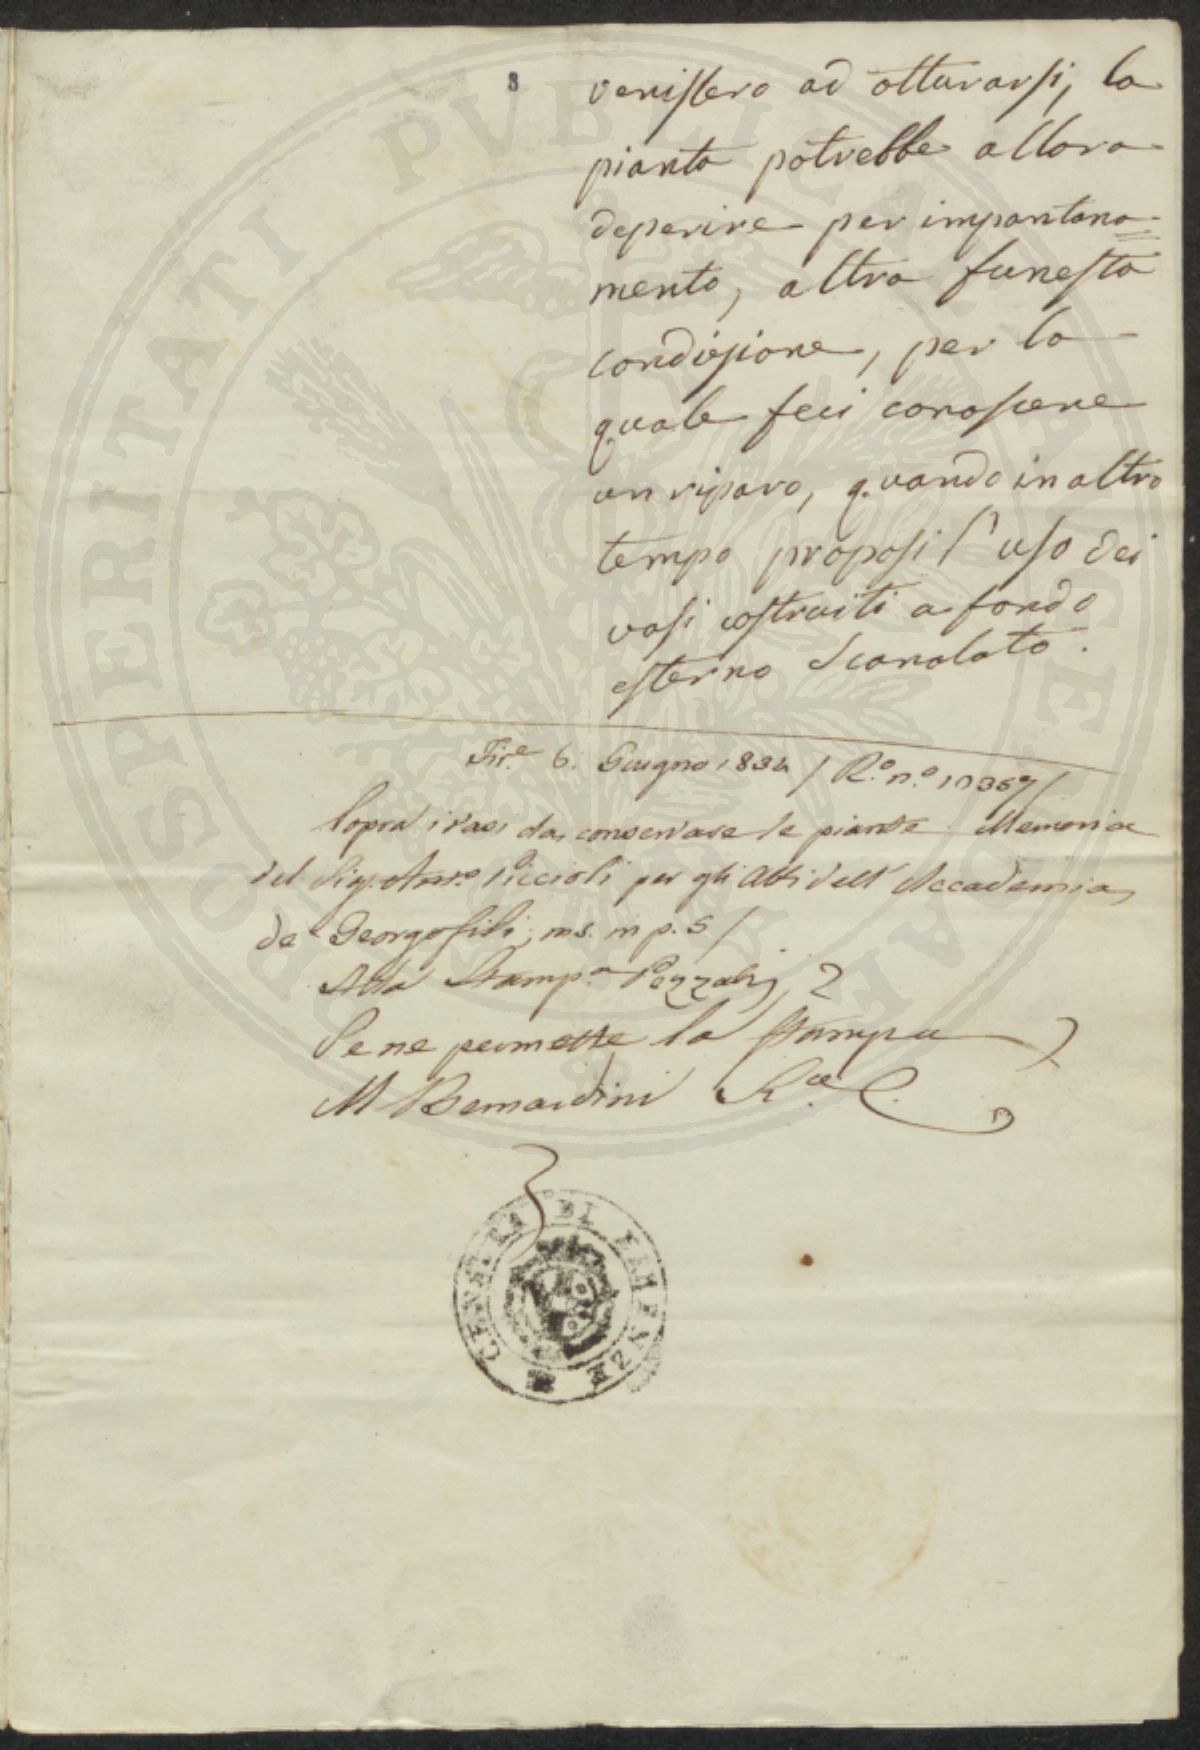 8
venissero ad otturarsi, la
pianta potrebbe allora
deperire per impantana-
mento, altra funesta
condizione, per la
quale feci conoscere
un riparo, quando in altro
tempo proposi l'uso dei
vasi costruiti a fondo
esterno scanalato.
Fir.e 6. Giugno 1834 / R.o n.o 10369/
Sopra i vasi da conservare le piante Memoria
del Sig. Ant.o Piccioli per gli Atti dell' Accademia
de Georgofili; ms. in p. 5/
Alla Stamp.a Pezzati
Se ne permette la Stampa
M Bernardini R.e C.
CENSURA DI FIRENZE
PROSPERITATI PUBLICAE AUGENDAE